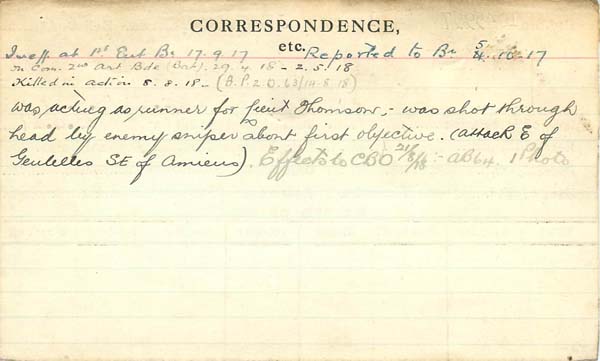 CORRESPONDENCE,
etc.
Ineff at 1st Ent Bn 17.9.17 Reported to Bn 5/4.10.17
In Com. 2nd Art Bde 29.4.18 - 2.5.18
Killed in action 8.8.18 - (B.P.2.O. 63/14.8.18)
was acting as runner for Lieut Thomson, - was shot through
head by enemy sniper about first objective. (attack E of
Gentelles St of Amiens). Effects to CBO 21/8/18 - AB64. 1 Photo